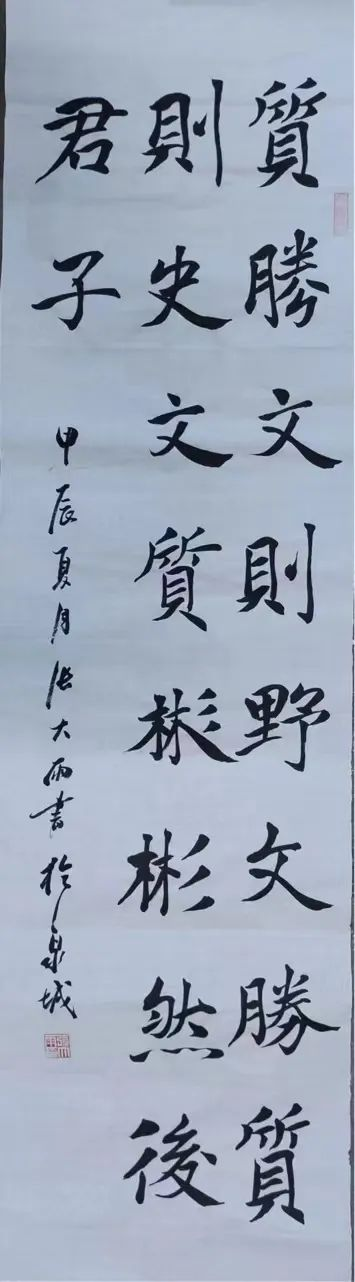 質勝文則野文勝質
則史文質彬彬然後
君子
甲辰夏月張大雨書於泉城